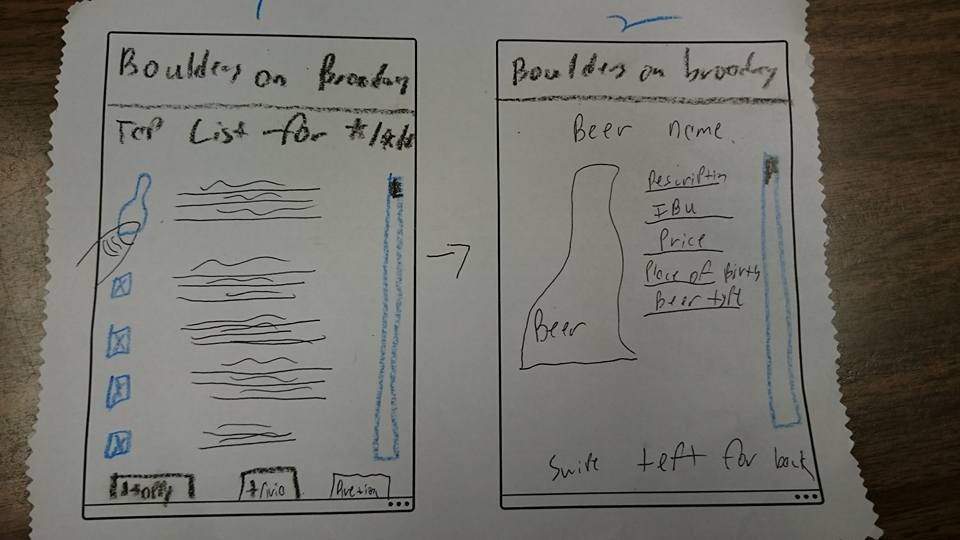 1
Boulders on Broadway
Tap List for */*/*
trivia
2
Boulders on broadway
Beer name
Description
IBU
Price
Place of Birth
Beer type
Beer
Swipe left for back